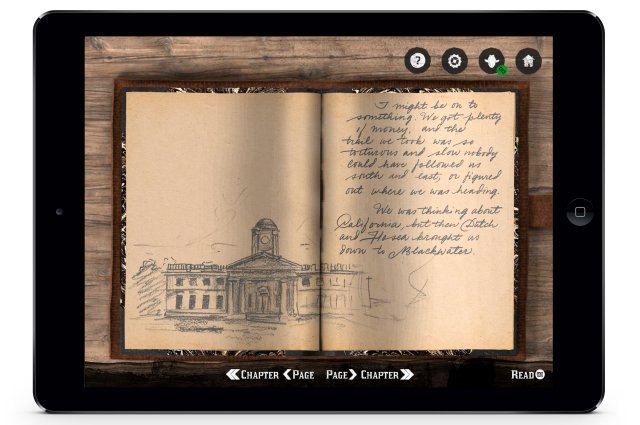 ?
I might be on to
something. We got plenty
of money, and the
trail we took was so
torturous and slow nobody
could have followed us
south and east, or figured
out where we was heading.
We was thinking about
California, but then Dutch
and Hosea brought us
down to Blackwater.
Chapter Page Page Chapter Read